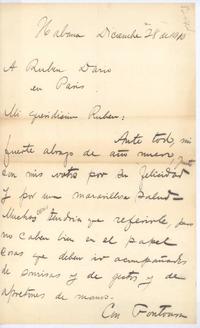 Habana Diciembre 28 de 1910
A Ruben Dario
en Paris.
Mi queridisimo Ruben:
Ante todo, mi
fuerte abrazo de año nuevo, junto
con mis votos por su felicidad
y por una maravillosa salud.
Muchas cosas tendria que referirle, pero
no caben bien en el papel
cosas que deben ir acompañadas
de sonrisas y de gestos y de
apretones de manos.
Con Fontoura